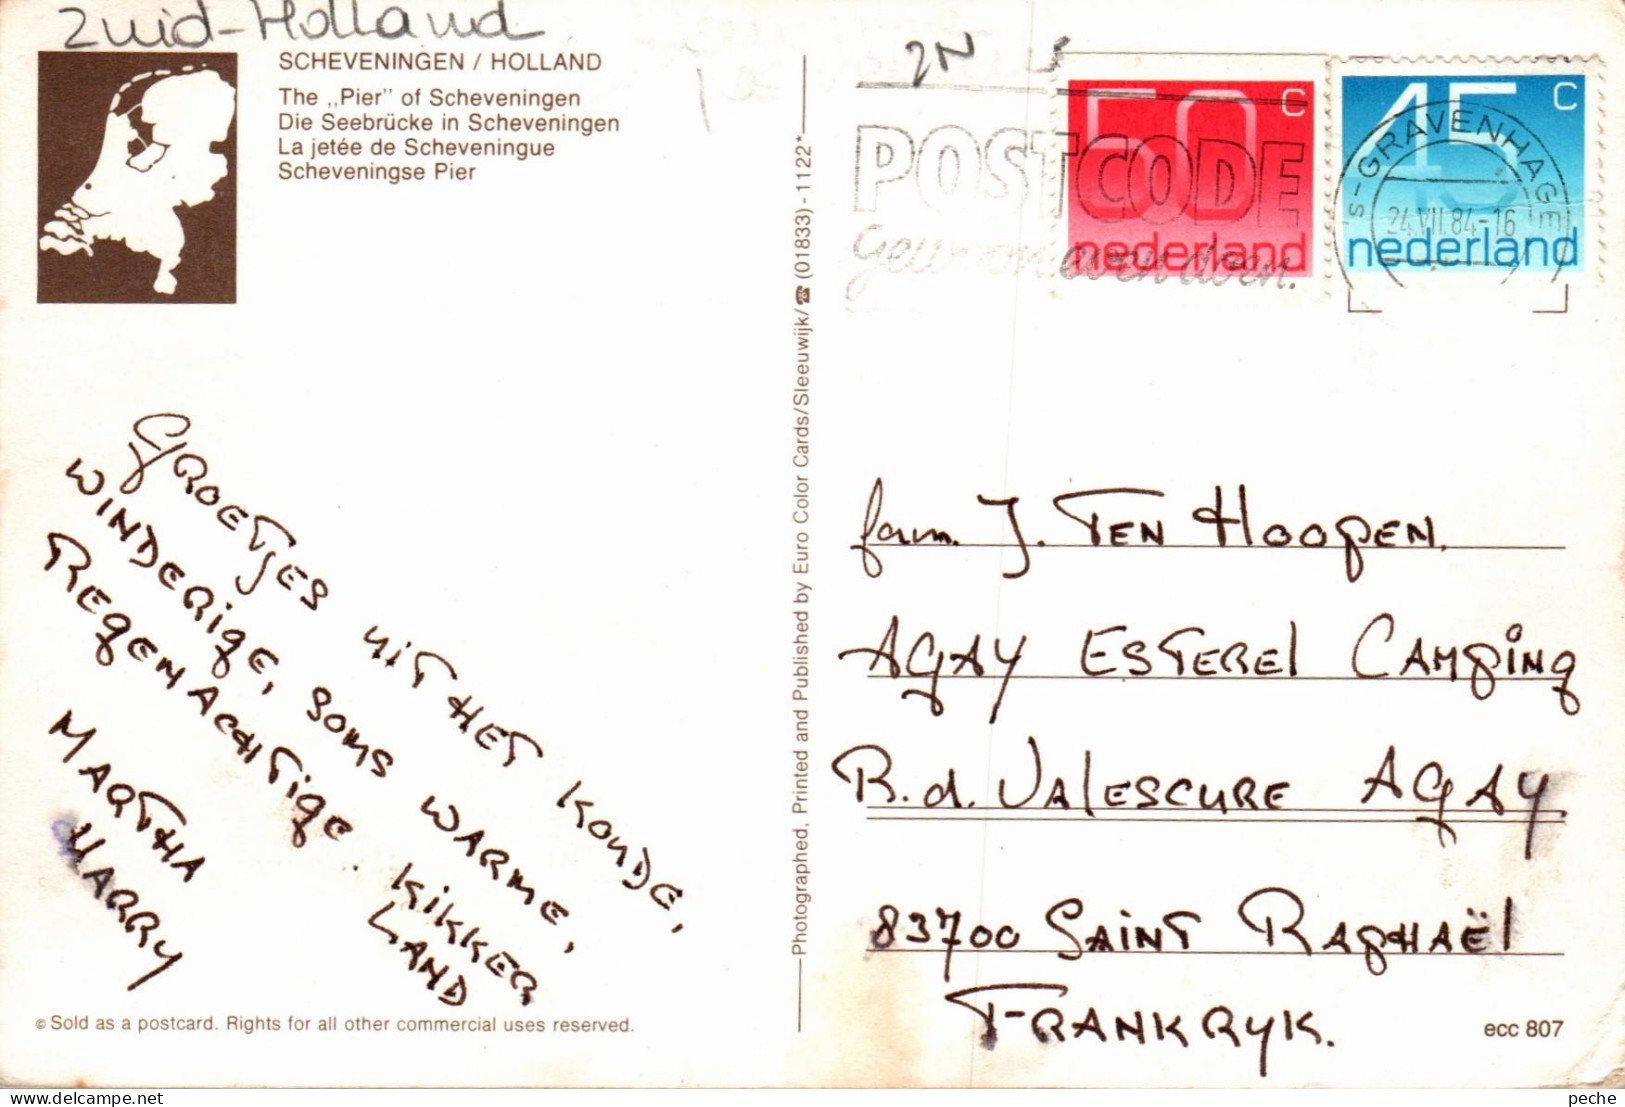 Zuid-Holland
SCHEVENINGEN / HOLLAND
The „Pier" of Scheveningen
Die Seebrücke in Scheveningen
La jetée de Scheveningue
Scheveningse Pier
GROETJES UIT HET KOUDE,
WINDERIGE, SOMS WARME,
REGENACHTIGE KIKKER
LAND
MARTHA
HARRY
© Sold as a postcard. Rights for all other commercial uses reserved.
Photographed, Printed and Published by Euro Color Cards/Sleeuwijk/☎ (01833) - 1122*
2N
POSTCODE
gewoon even doen.
50 c
nederland
45 c
nederland
's-GRAVENHAGE
24.VII.84-16
fam. J. TEN HOOPEN.
AGAY ESTEREL CAMPING
B.d. VALESCURE AGAY
83700 SAINT RAPHAËL
FRANKRYK.
ecc 807
peche